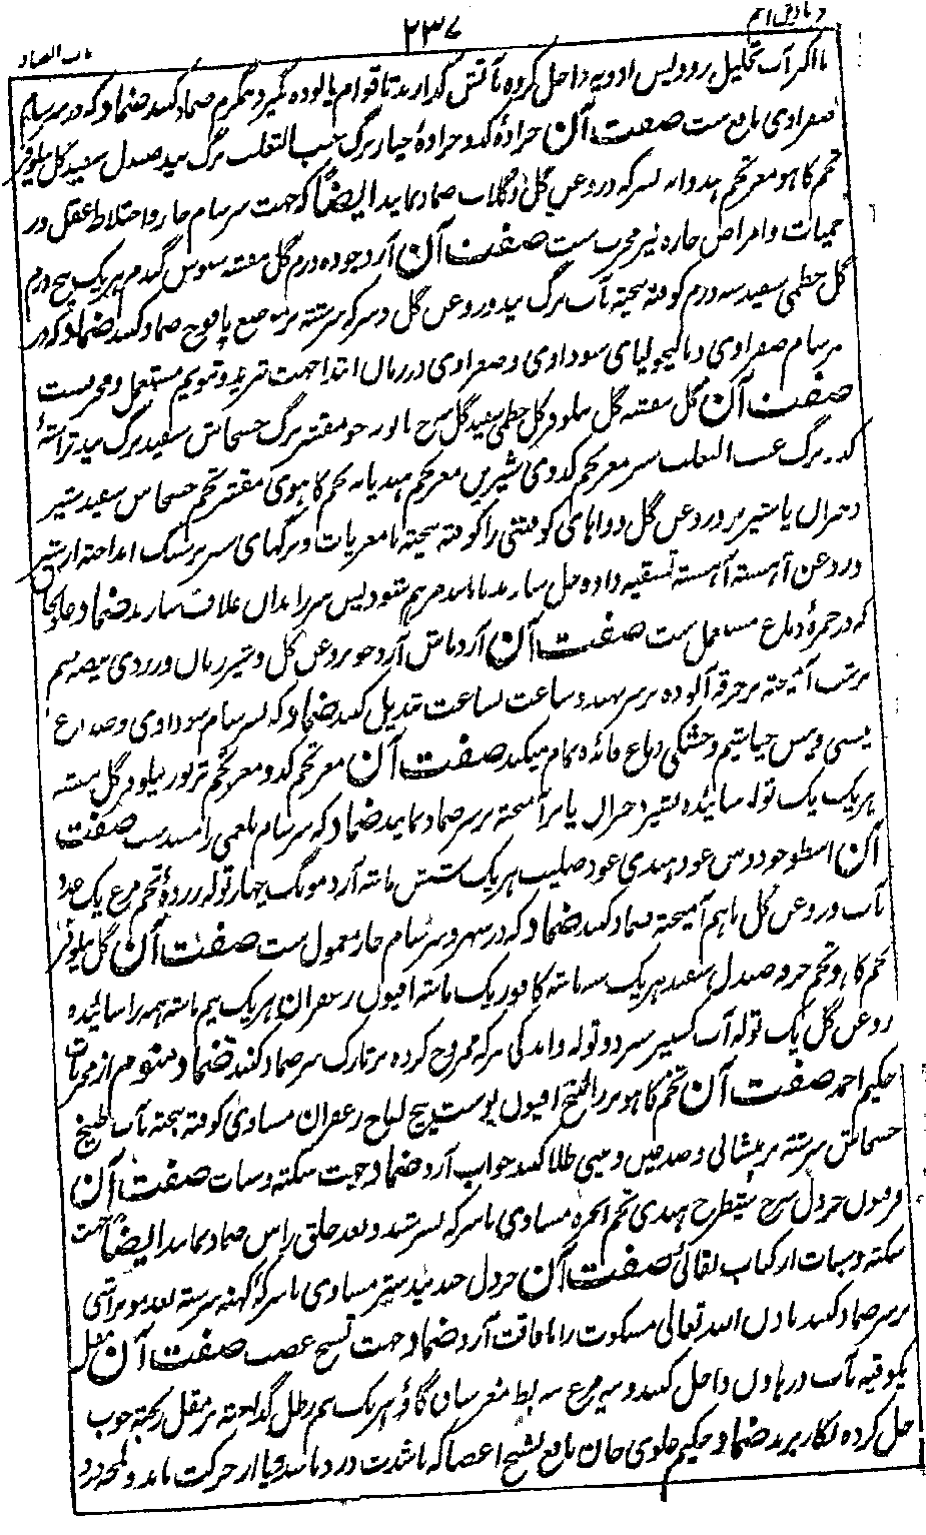 باب الضاد ۲۳۷
تا اکثر آب تحلیل رود پس ادویه داخل کرده بآتش گذارند تا قوام پالوده گیرد نیمگرم ضماد کنند ضماد که در سرسام
صفراوی نافع ست صفت آن خرادۀ کدو خرادۀ خیار برگ عنب الثعلب برگ بید صندل سفید گل نیلوفر
تخم کاهو مغز تخم هندوانه بسرکه و روغن گل و گلاب ضماد نمایند ایضاً که جهت سرسام حار و اختلاط عقل در
حمیات و امراض حاره نیز مجرب ست صفت آن آرد جو ده درم گل بنفشه سبوس گندم هر یک پنج درم
گل خطمی سفید سه درم کوفته بیخته بآب برگ بید و روغن گل و سرکه سرشته بر موضع یافوخ ضماد کنند ضماد که در
سرسام صفراوی و مالیخولیای سوداوی و صفراوی در زمان ابتدا جهت تبرید و تنویم مستعمل و مجرب ست
صفت آن گل بنفشه گل نیلوفر گل خطمی سفید گل سرخ آرد جو مقشر برگ خشخاش سفید برگ بید تراشۀ
کدو برگ عنب الثعلب سبز مغز تخم کدوی شیرین مغز تخم هندیانه تخم کاهوی مقشر تخم خشخاش سفید بشیر
دختران یا بشیر بز و روغن گل دواهای کوفتنی را کوفته بیخته با مغزیات و برگهای سبز بر سنگ انداخته از شیر
و روغن آهسته آهسته تسقیه داده حل سازند تا مانند مرهم شود پس سر را بدان غلاف سازند ضماد علویخان
که در حمرۀ دماغ مستعمل ست صفت آن آرد ماش آرد جو بروغن گل و شیر زنان و زردی بیضه نیم
برشت آمیخته بر خرقه آلوده بر سر نهند و ساعت بساعت تبدیل کنند ضماد که بسرسام سوداوی و صداع
یبسی و یبس خیاشیم و خشکی دماغ فائده تمام میکند صفت آن مغز تخم کدو مغز تخم تربوز نیلوفر گل بنفشه
هر یک یک توله سائیده بشیر دختران یا بز آمیخته بر سر ضماد نمایند ضماد که سرسام بلغمی را مفید ست صفت
آن اسطوخودوس عود هندی عود صلیب هر یک شش ماشه آرد مونگ چهار توله زردۀ تخم مرغ یک عدد
بآب و روغن گل باهم آمیخته ضماد کنند ضماد که در سهر و سرسام حار معمول ست صفت آن گل نیلوفر
تخم کاهو تخم خرفه صندل سفید هر یک سه ماشه کافور یک ماشه افیون زعفران هر یک نیم ماشه همه را سائیده
روغن گل یک توله آب کشنیز سبز دو توله و اندکی سرکه ممزوج کرده بر تارک سر ضماد کنند ضماد منوم از مجربات
حکیم احمد صفت آن تخم کاهو بزرالبنج افیون پوست بیخ لفاح زعفران مساوی کوفته بیخته بآب طبیخ
خشخاش سرشته بر پیشانی و صدغین و بینی طلا کنند خواب آرد ضماد جهت سکته و سبات صفت آن
فرفیون خردل سرخ شیطرج هندی تخم انجره مساوی با سرکه بسرشند و بعد حلق راس ضماد نمایند ایضاً جهت
سکته و سبات از کتاب بقائی صفت آن خردل جندبیدستر مساوی با سرکۀ کهنه سرشته بعد موتراشی
بر سر ضماد کنند باذن الله تعالی مسکوت را بافاقت آرد ضماد جهت تشنج عصب صفت آن مقل
یکوقیه بآب در هاون داخل کنند و پیه مرغ پیه بط مغز ساق گاو هر یک نیم رطل گداخته بر مقل ریخته خوب
حل کرده بکار برند ضماد حکیم علوی خان نافع تشنج اعضا که باشدت درد باشد و یا از حرکت ماند و لمحه درد